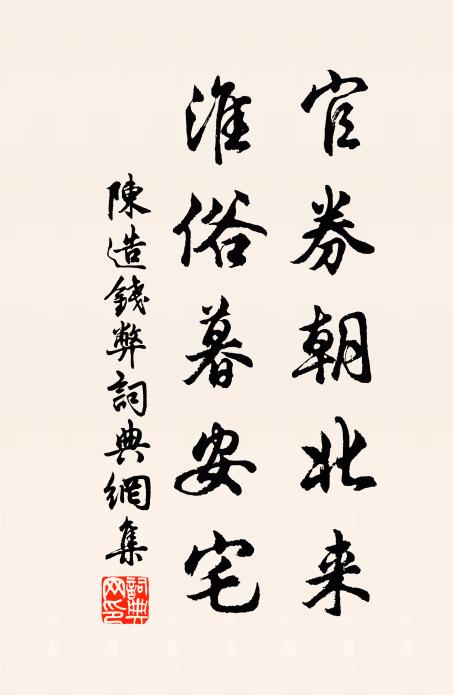 官券朝北来
淮俗暮安宅
陳造錢弊詞典網集
詞典网印